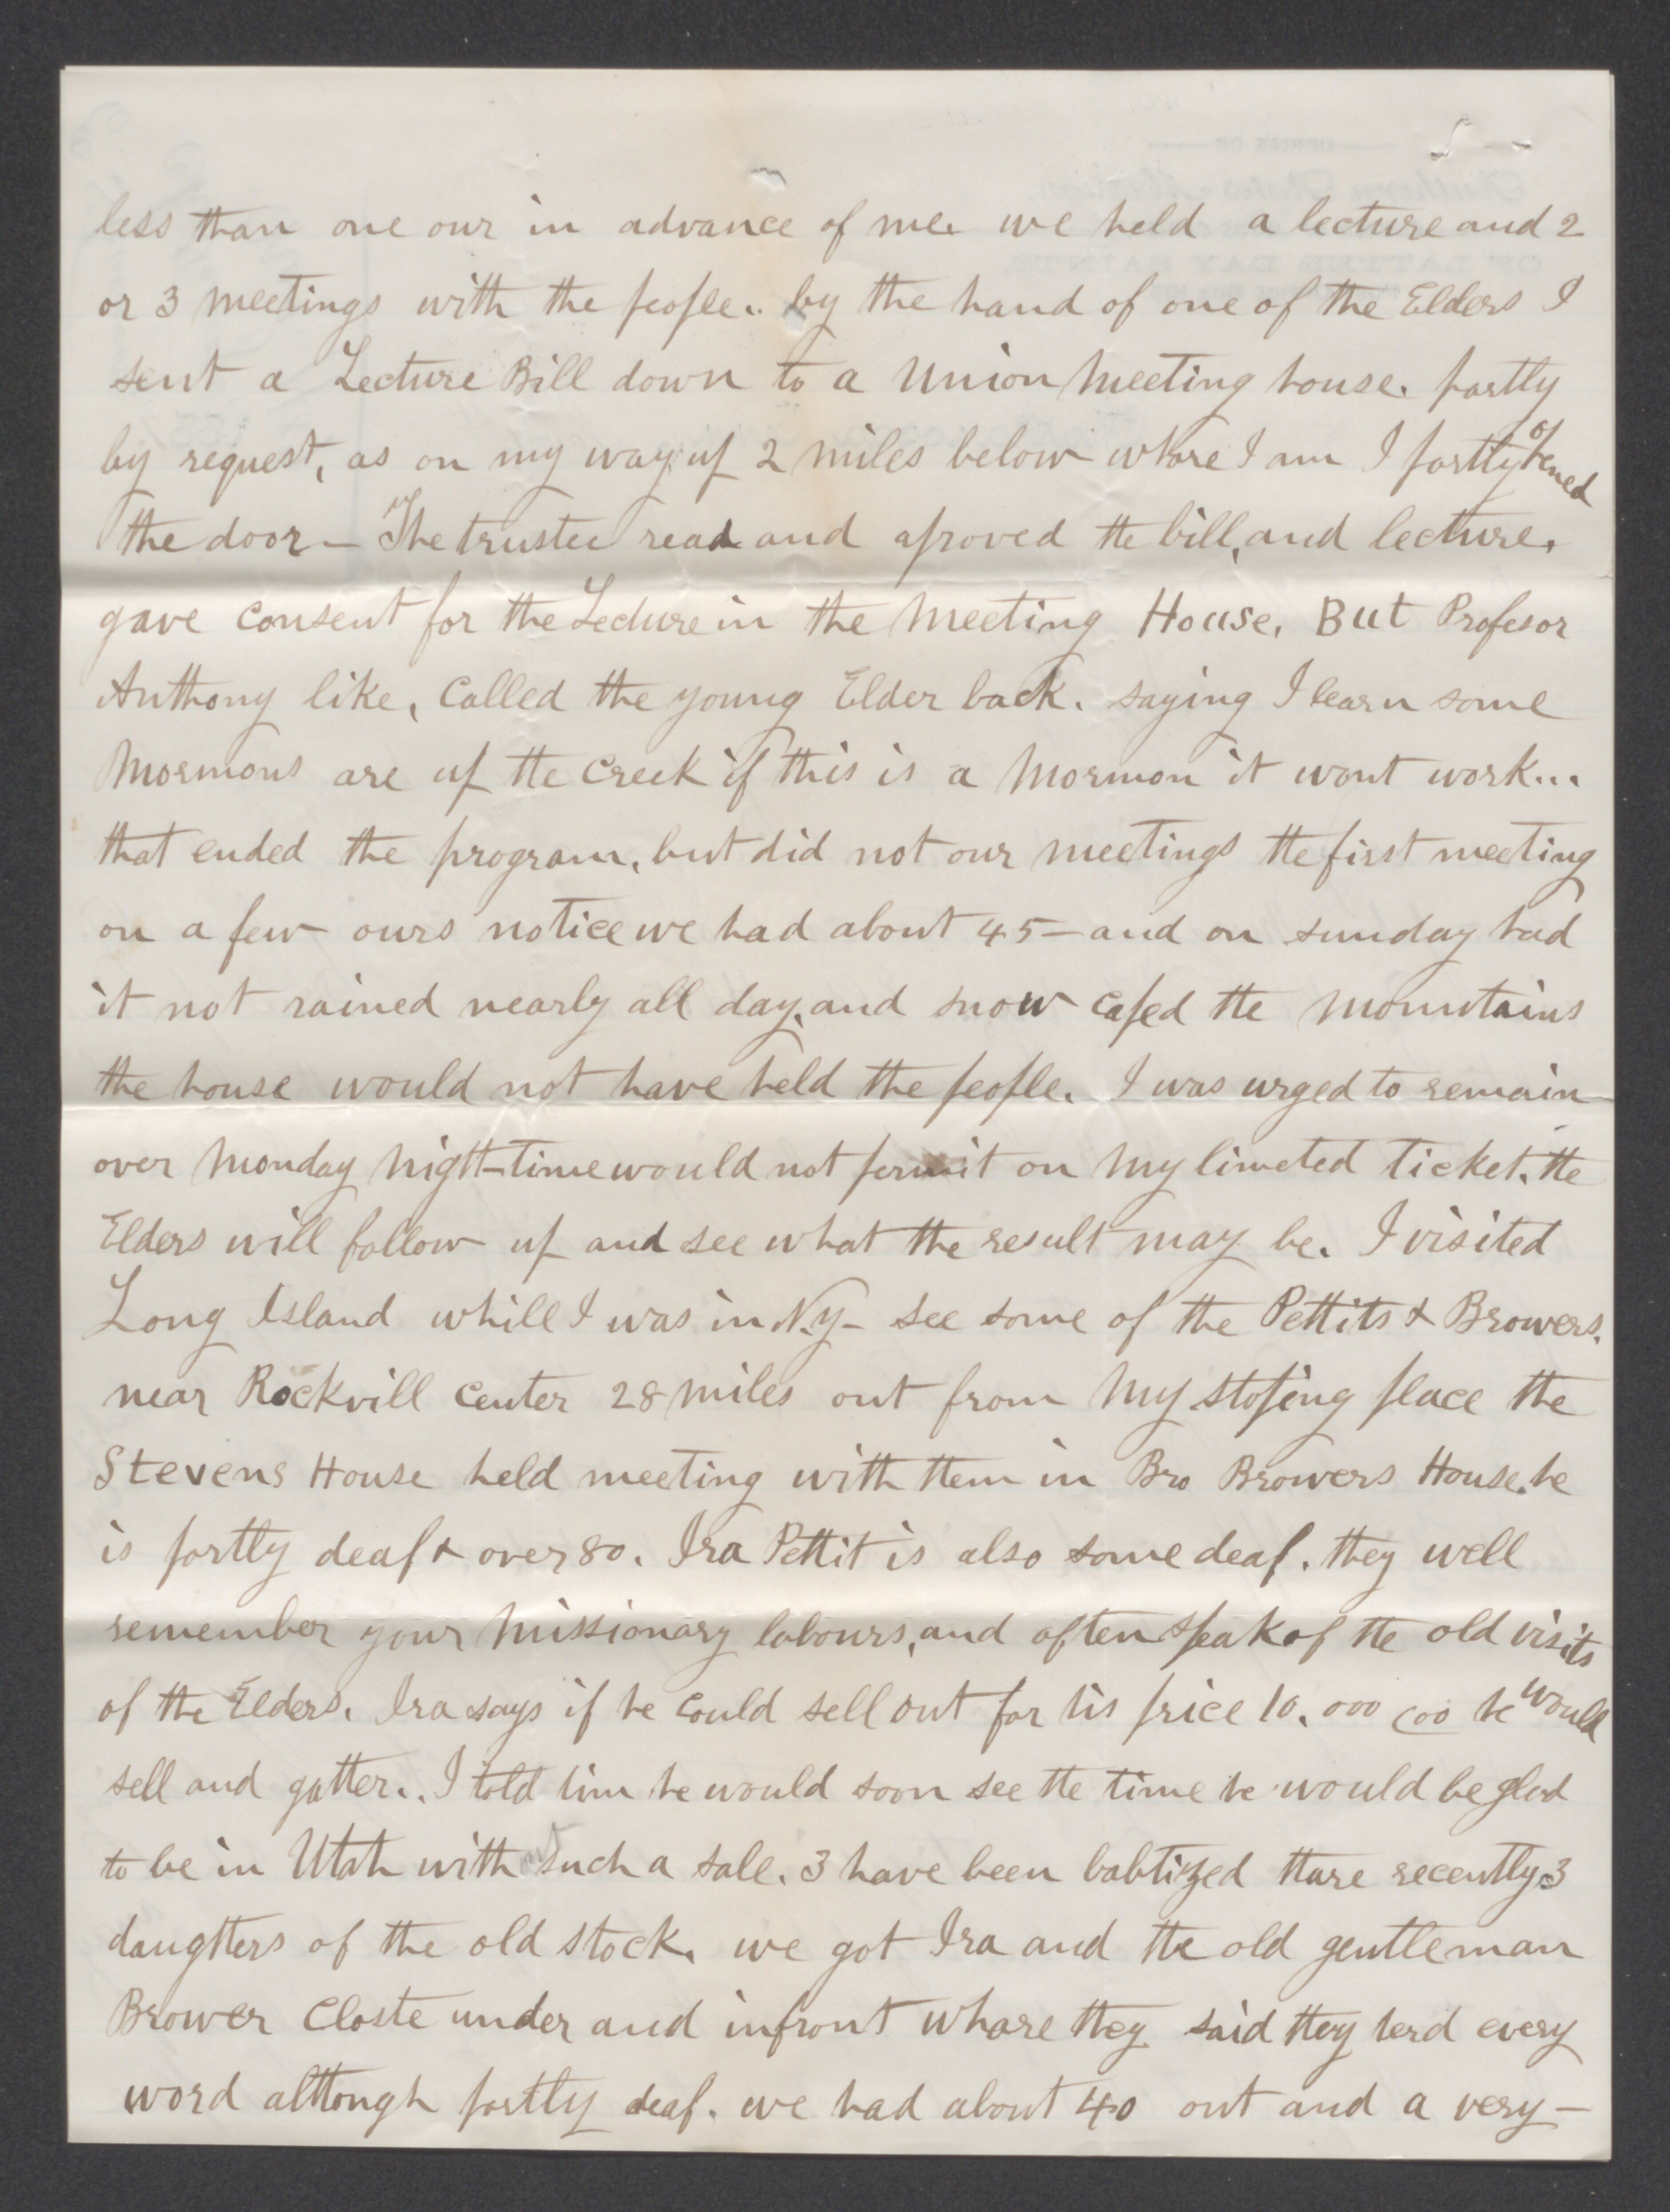 less than one our in advance of me. we held a lecture and 2
or 3 meetings with the people.. by the hand of one of the Elders I
sent a Lecture Bill down to a Union Meeting house. partly
by request, as on my way up 2 miles below whare I am I partly opened
the door — The trustee read and aproved the bill, and lecture.
gave consent for the Lecture in the Meeting House. But Profesor
Anthony like, Called the young Elder back. saying I learn some
Mormons are up the Creek if this is a Mormon it wont work...
that ended the program, but did not our meetings the first meeting
on a few ours notice we had about 45 — and on sunday had
it not rained nearly all day, and snow caped the Mountains
the house would not have held the people. I was urged to remain
over Monday Night—time would not permit on My limeted Ticket. the
Elders will follow up and see what the result may be. I visited
Long Island whill I was in N.y— see some of the Pettits & Browers.
near Rockvill Center 28 miles out from My stoping place the
Stevens House held meeting with them in Bro Browers House. he
is partly deaf & over 80. Ira Pettit is also some deaf. they well
remember your Missionary labours, and often speak of the old visits
of the Elders. Ira says if he could sell out for his price 10.000 00 he would
sell and gather.. I told him he would soon see the time he would be glad
to be in Utah with out such a sale. 3 have been babtized thare recently 3
daugthers of the old stock. we got Ira and the old gentleman
Brower Closte under and infront whare they said they herd every
word although partly deaf. we had about 40 out and a very —